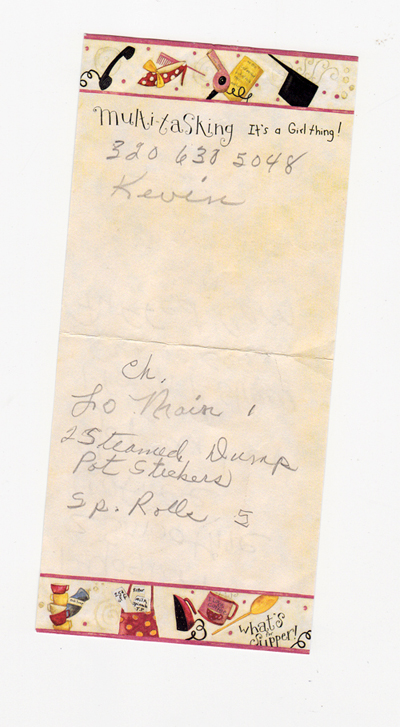 multi-tasking It's a Girl thing!
320 630 5048
Kevin
Ch.
Lo Main 1
2 Steamed Dump
Pot Stickers
Sp. Rolls 5
what's for supper!